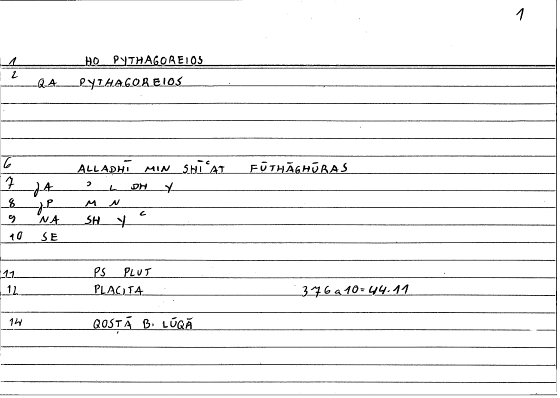 1
1 HO PYTHAGOREIOS
2 QA PYTHAGOREIOS
6 ALLADHĪ MIN SHĪʿAT FŪTHĀGHŪRAS
7 jA ʾ L DH Y
8 jP M N
9 NA SH Y ʿ
10 SE
11 PS PLUT
12 PLACITA 376a10=44.11
14 QOSṬĀ B. LŪQĀ